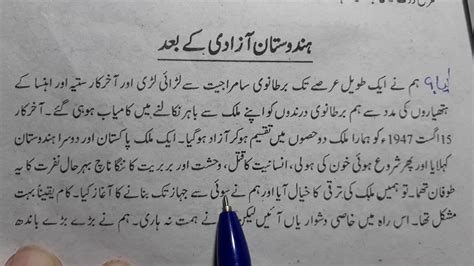 ہندوستان آزادی کے بعد
ہم نے ایک طویل عرصے تک برطانوی سامراجیت سے لڑائی لڑی اور آخر کار ستیہ اور اہنسا کے
ہتھیاروں کی مدد سے ہم برطانوی درندوں کو اپنے ملک سے باہر نکالنے میں کامیاب ہو ہی گئے۔ آخر کار
15 اگست 1947ء کو ہمارا ملک دو حصوں میں تقسیم ہو کر آزاد ہو گیا۔ ایک ملک پاکستان اور دوسرا ہندوستان
کہلایا اور پھر شروع ہوئی خون کی ہولی، انسانیت کا قتل، وحشت اور بربریت کا ننگا ناچ بہر حال نفرت کا یہ
طوفان تھما۔ تو ہمیں ملک کی ترقی کا خیال آیا اور ہم نے سوئی سے جہاز تک بنانے کا آغاز کیا۔ کام یقیناً بہت
مشکل تھا۔ اس راہ میں خاصی دشواریاں آئیں لیکن نے ہمت نہ ہاری۔ ہم نے بڑے بڑے باندھ